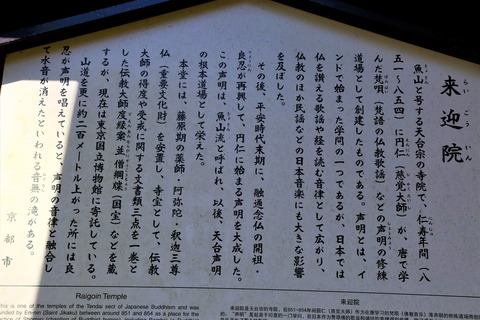 来迎院
らいごういん
魚山と号する天台宗の寺院で、仁寿年間（八
五一〜八五四）に円仁（慈覚大師）が、唐で学
んだ梵唄（梵語の仏教歌謡）などの声明の修練
道場として創建したものである。声明とは、イ
ンドで始まった学問の一つであるが、日本では
仏を讃える歌謡や経を読む音律として広がり、
仏教のほか民謡などの日本音楽にも大きな影響
を及ぼした。
その後、平安時代末期に、融通念仏の開祖・
良忍が再興して、円仁に始まる声明を大成した。
この声明は、魚山流と呼ばれ、以後、天台声明
の根本道場として栄えた。
本堂には、藤原期の薬師・阿弥陀・釈迦三尊
仏（重要文化財）を安置し、寺宝として、伝教
大師の得度や受戒に関する文書類三点を一巻と
した伝教大師度縁案並僧綱牒（国宝）などを蔵
するが、現在は東京国立博物館に寄託している。
山道を更に約二百メートル上がった所には良
忍が声明を唱えていると、声明の音律と融合し
て水音が消えたといわれる音無の滝がある。
京都市
Raigoin Temple
This is one of the temples of the Tendai sect of Japanese Buddhism and was
founded by En-nin (Saint Jikaku) between 851 and 854 as a place for the
来迎院